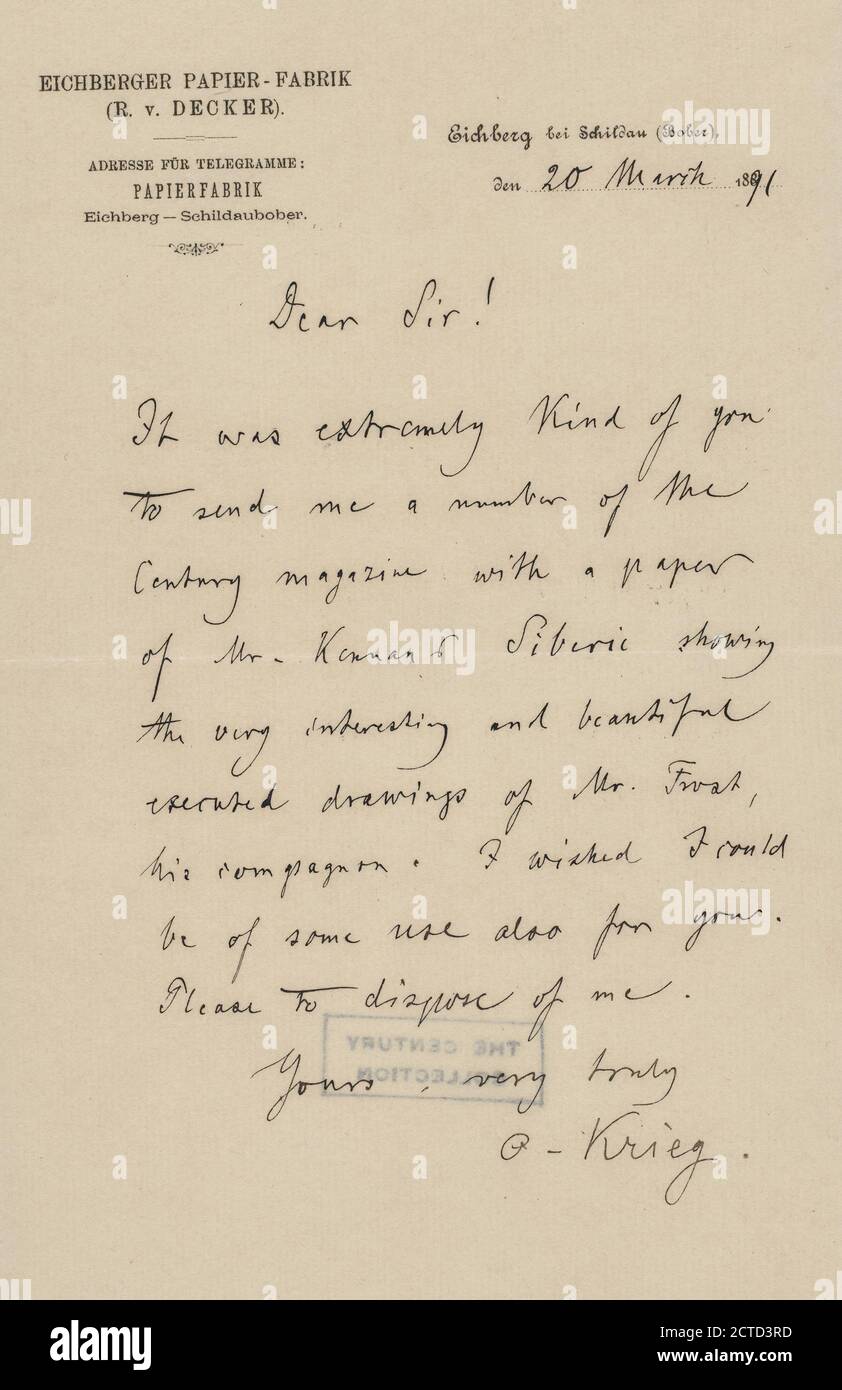 EICHBERGER PAPIER-FABRIK
(R. v. DECKER).
ADRESSE FÜR TELEGRAMME:
PAPIERFABRIK
Eichberg — Schildaubober.
Eichberg bei Schildau (Bober),
den 20 March 1891
Dear Sir!
It was extremely kind of you
to send me a number of the
Century magazine with a paper
of Mr. Kennan's Siberie showing
the very interesting and beautiful
executed drawings of Mr. Frost,
his compagnon. I wished I could
be of some use also for you.
Please to dispose of me.
THE CENTURY
COLLECTION
Yours, very truly
Krieg.
alamy
alamy
Image ID: 2CTD3RD
www.alamy.com